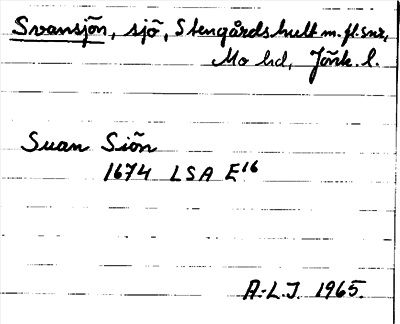 Svansjön, sjö, Stengårdshult m. fl. snr,
Mo hd, Jönk. l.
Suan Siön
1674 LSA E16
A-L.J. 1965.